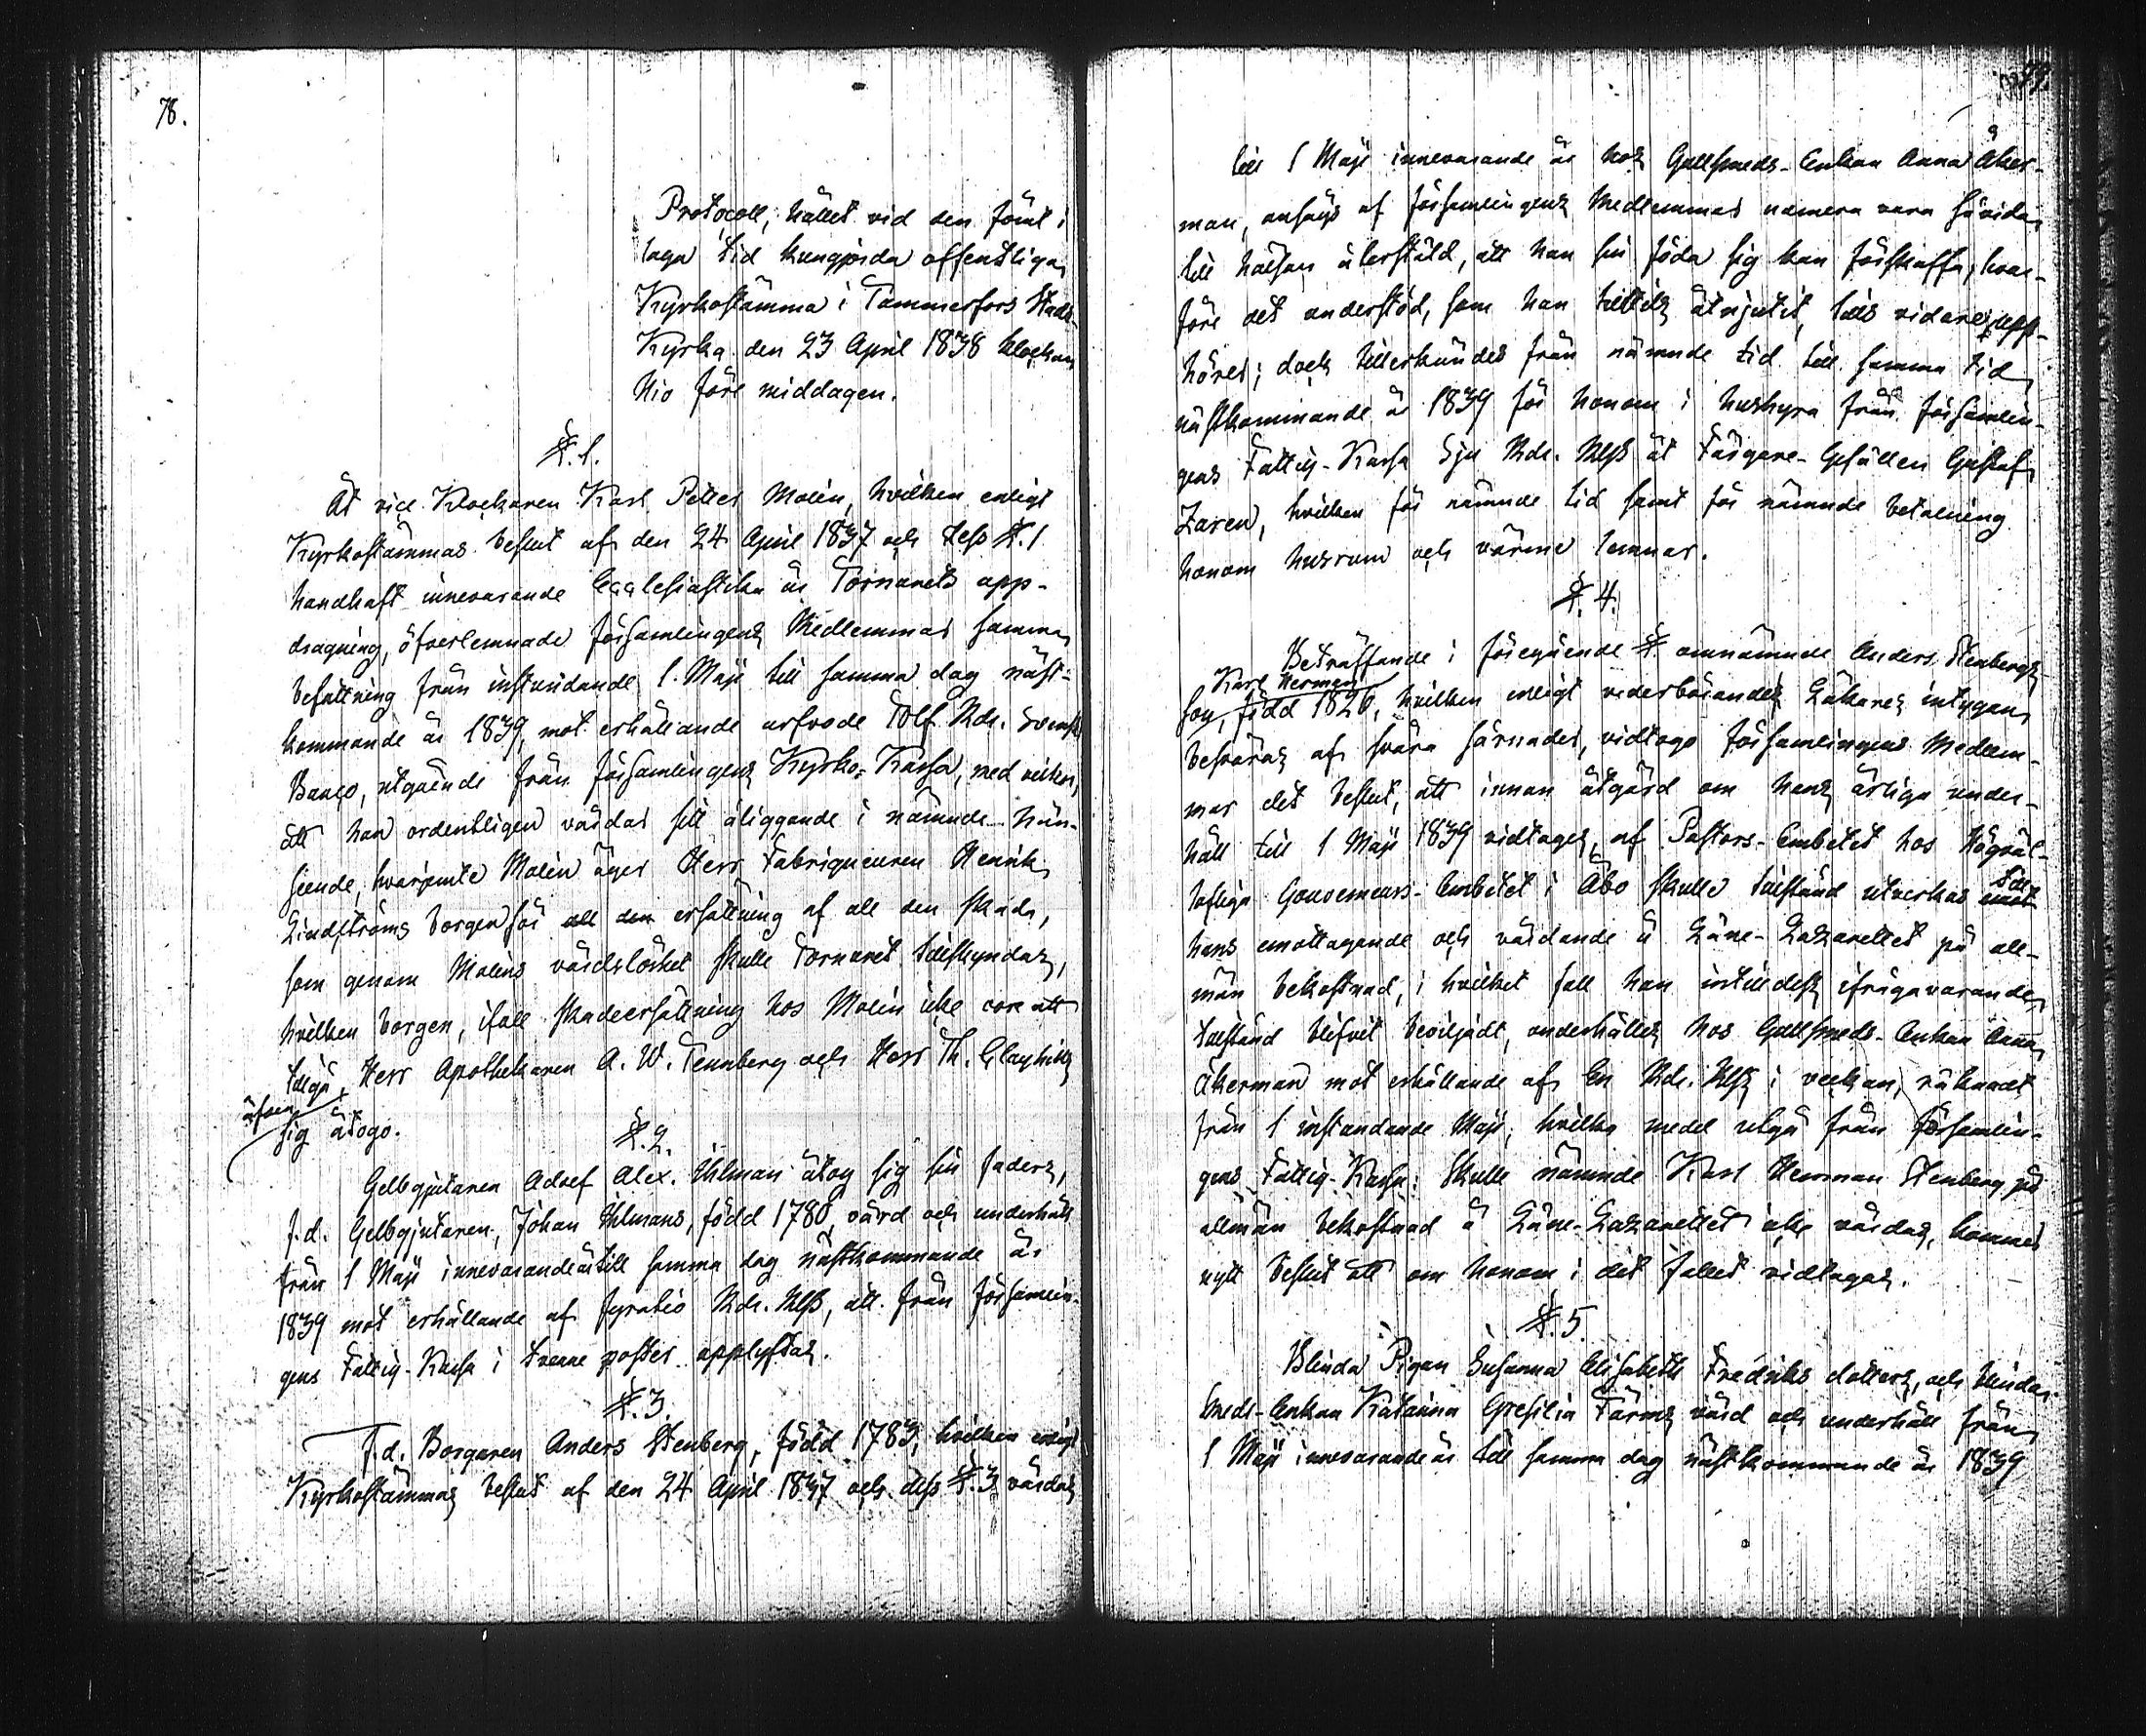 78.
Protocoll, hållet vid den förut i
laga tid kungjorda offentliga
Kyrkostämma i Tammerfors Stads
Kyrka den 23 April 1838 klockan
Nio före middagen.
§. 1.
Åt vice Klockaren Karl Petter Molin, hvilken enligt
Kyrkostämmas beslut af den 24 April 1837 och dess §. 1
handhaft innevarande Ecclesiastika år Tornurets upp-
dragning, öfverlemnade Församlingens Medlemmar samma
befattning från instundande 1. Maji till samma dag näst-
kommande år 1839, mot erhållande arfvode Tolf Rdr. Svenskt
Banco, utgående från Församlingens Kyrko-Kassa, med vilkor,
att han ordentligen vårdar sitt åliggande i nämnde hän-
seende, hvarjemte Molin äger Herr Fabriqueuren Henrik
Lindströms borgen för all den ersättning af all den skada,
som genom Molins vårdslöshet skulle Tornuret tillskyndas,
hvilken borgen, ifall skadeersättning hos Molin icke vore att
tillgå, Herr Apothekaren A. W. Tennberg och Herr Th. Clayhills
äfven
sig åtogo.
§. 2.
Gelbgjutaren Adolf Alex. Uhlman åtog sig sin faders,
f.d. Gelbgjutaren, Johan Uhlmans, född 1780, vård och underhåll
från 1 Maji innevarande år till samma dag nästkommande år
1839 mot erhållande af fyratio Rdr. Rgs, att från Församlin-
gens Fattig-Kassa i trenne poster upplyftas.
§. 3.
F.d. Borgaren Anders Stenberg, född 1783, hvilken enligt
Kyrkostämmas beslut af den 24 April 1837 och dess §. 3 vårdats
79.
till 1 Maji innevarande år hos Gullsmeds-Enkan Anna Åker-
man, ansågs af Församlingens Medlemmar numera vara såvida
till hälsan återstäld, att han sin föda sig kan förskaffa, hvar-
före det understöd, som han hittills åtnjutit, tills vidare upp-
hörer; dock tillerkändes från nämnde tid till samma tid
nästkommande år 1839 för honom i hushyra från Församlin-
gens Fattig-Kassa Sju Rdr. Rgs åt Färgare-Gesällen Gustaf
Zaren, hvilken för nämnde tid samt för nämnde betalning
honom husrum och värme lemnar.
§. 4.
Beträffande i föregående §. omnämnde Anders Stenbergs
Karl Herman
son, född 1826, hvilken enligt vederbörandes Läkares intygan
besväras af svåra sårnader, vidtogo Församlingens Medlem-
mar det beslut, att innan åtgärd om hans årliga under-
håll till 1 Maji 1839 vidtages, af Pastors-Embetet hos Högväl-
lofliga Gouverneurs-Embetet i Åbo skulle tillstånd utverkas emot
till
hans emottagande och vårdande å Läns-Lazarettet på all-
män bekostnad, i hvilket fall han intilldess ifrågavarande
tillstånd blifvit beviljadt, underhålles hos Gullsmeds-Enkan Anna
Åkerman mot erhållande af En Rdr. Rgs i veckan, räknadt
från 1 instundande Maji, hvilka medel utgå från Församlin-
gens Fattig-Kassa: Skulle nämnde Karl Herman Stenberg på
allmän bekostnad å Läns-Lazarettet icke vårdas, kommer
nytt beslut att om honom i det fallet vidtagas.
§. 5.
Blinda Pigan Susanna Elisabeth Fredriksdotters, och blinda
Smeds-Enkan Katarina Gresilia Färms vård och underhåll från
1 Maji innevarande år till samma dag nästkommande år 1839